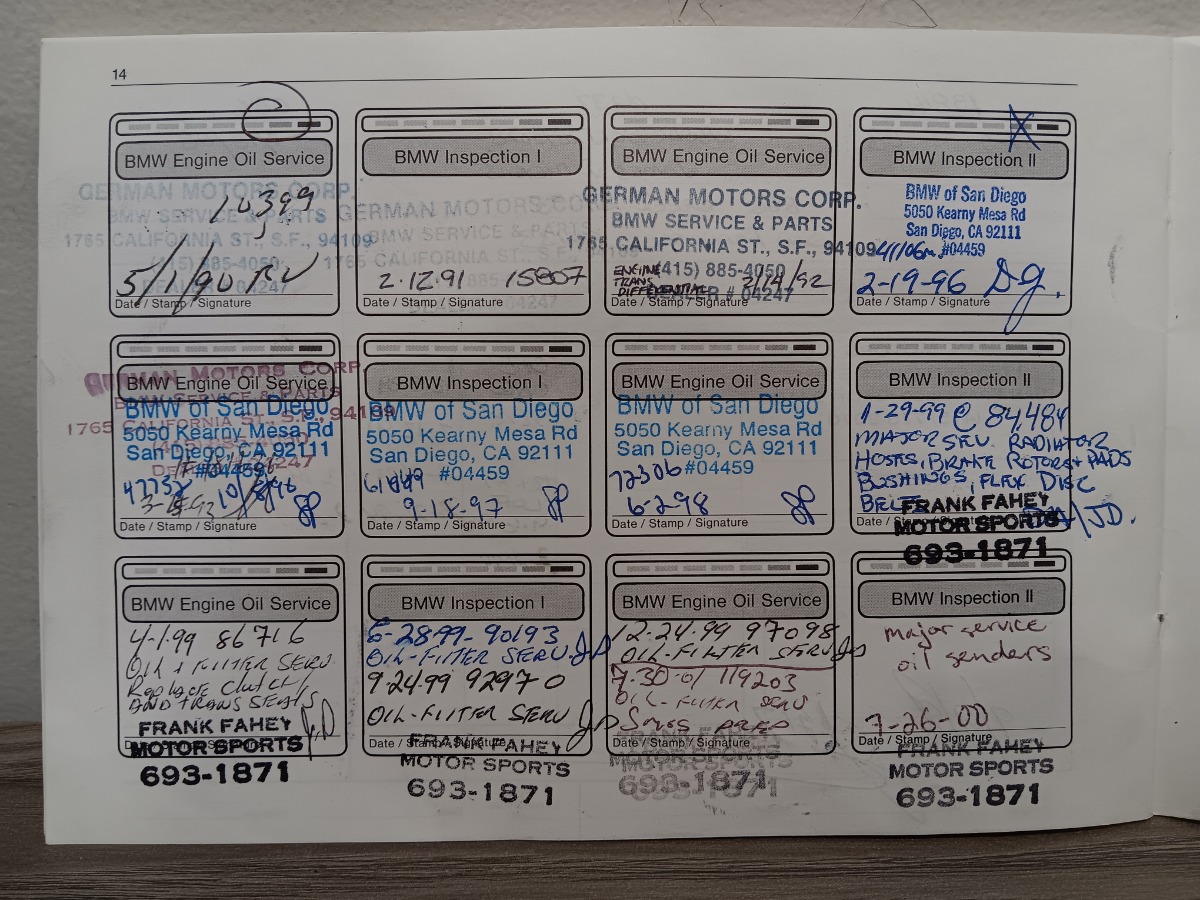 14
BMW Engine Oil Service
GERMAN MOTORS CORP.
BMW SERVICE & PARTS
1765 CALIFORNIA ST., S.F., 94109
(415) 885-4050
10399
5/1/90 RV
Date / Stamp / Signature
BMW Inspection I
GERMAN MOTORS CORP.
BMW SERVICE & PARTS
2.12.91 15807
Date / Stamp / Signature
BMW Engine Oil Service
GERMAN MOTORS CORP.
BMW SERVICE & PARTS
1765 CALIFORNIA ST., S.F., 94109
(415) 885-4050
DEALER # 04247
ENGINE
TRANS
DIFFERENTIAL
2/14/92
Date / Stamp / Signature
BMW Inspection II
BMW of San Diego
5050 Kearny Mesa Rd
San Diego, CA 92111
#04459
2-19-96
Date / Stamp / Signature
BMW Engine Oil Service
GERMAN MOTORS CORP.
BMW SERVICE & PARTS
1765 CALIFORNIA ST., S.F., 94109
BMW of San Diego
5050 Kearny Mesa Rd
San Diego, CA 92111
#04459
47732
10/8/96
Date / Stamp / Signature
BMW Inspection I
BMW of San Diego
5050 Kearny Mesa Rd
San Diego, CA 92111
#04459
9-18-97
Date / Stamp / Signature
BMW Engine Oil Service
BMW of San Diego
5050 Kearny Mesa Rd
San Diego, CA 92111
72306 #04459
6-2-98
Date / Stamp / Signature
BMW Inspection II
1-29-99 @ 84,484
MAJOR SRU. RADIATOR
HOSES, BRAKE ROTORS + PADS
BUSHINGS, FLEX DISC
BELTS
FRANK FAHEY
MOTOR SPORTS
693-1871
JD.
Date / Stamp / Signature
BMW Engine Oil Service
4-1-99 86716
OIL & FILTER SERV.
Replace Clutch
AND TRANS SEALS
J.D
FRANK FAHEY
MOTOR SPORTS
693-1871
BMW Inspection I
6-28-99- 90193
OIL-FILTER SERV. JD
9-24-99 92970
OIL-FILTER SERV JD
Date / Stamp / Signature
FRANK FAHEY
MOTOR SPORTS
693-1871
BMW Engine Oil Service
12-24-99 97098
OIL-FILTER SERV JD
7-30-01 119203
OIL-FILTER SERV
Date / Stamp / Signature
FRANK FAHEY
MOTOR SPORTS
693-1871
BMW Inspection II
major service
oil senders
7-26-00
Date / Stamp / Signature
FRANK FAHEY
MOTOR SPORTS
693-1871